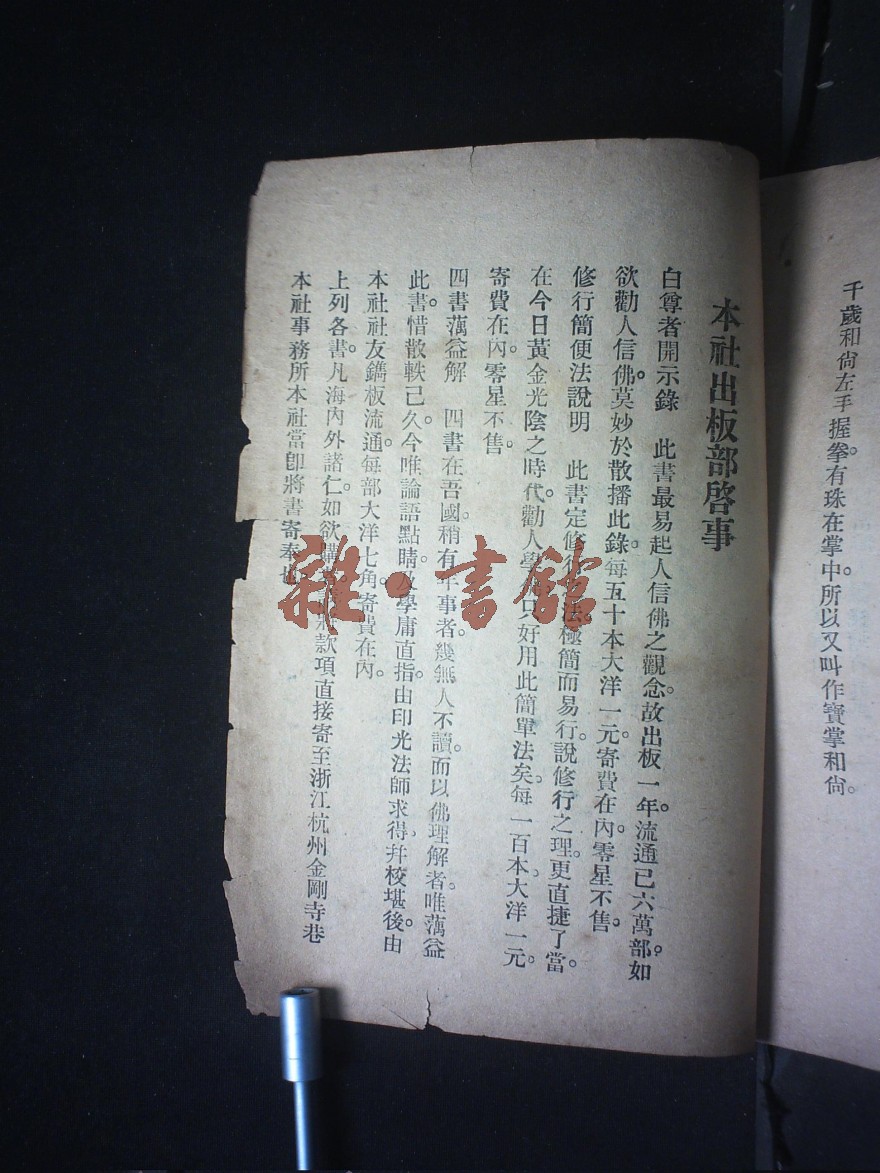 千歲和尙左手握拳。有珠在掌中。所以又叫作寶掌和尙。
本社出板部啓事
白尊者開示錄　此書最易起人信佛之觀念。故出板一年。流通已六萬部。如
欲勸人信佛。莫妙於散播此錄。每五十本大洋一元。寄費在內。零星不售。
修行簡便法說明　此書定修行法。極簡而易行。說修行之理。更直捷了當。
在今日黃金光陰之時代。勸人學只好用此簡單法矣。每一百本。大洋一元。
寄費在內。零星不售。
四書蕅益解　四書在吾國。稍有年事者。幾無人不讀。而以佛理解者。唯蕅益
此書。惜散軼已久。今唯論語點睛。及學庸直指。由印光法師求得。幷校堪後。由
本社社友鐫板流通。每部大洋七角。寄費在內。
上列各書。凡海內外諸仁。如欲購款項直接寄至浙江杭州金剛寺巷
本社事務所本社當卽將書寄奉也
雜·書館